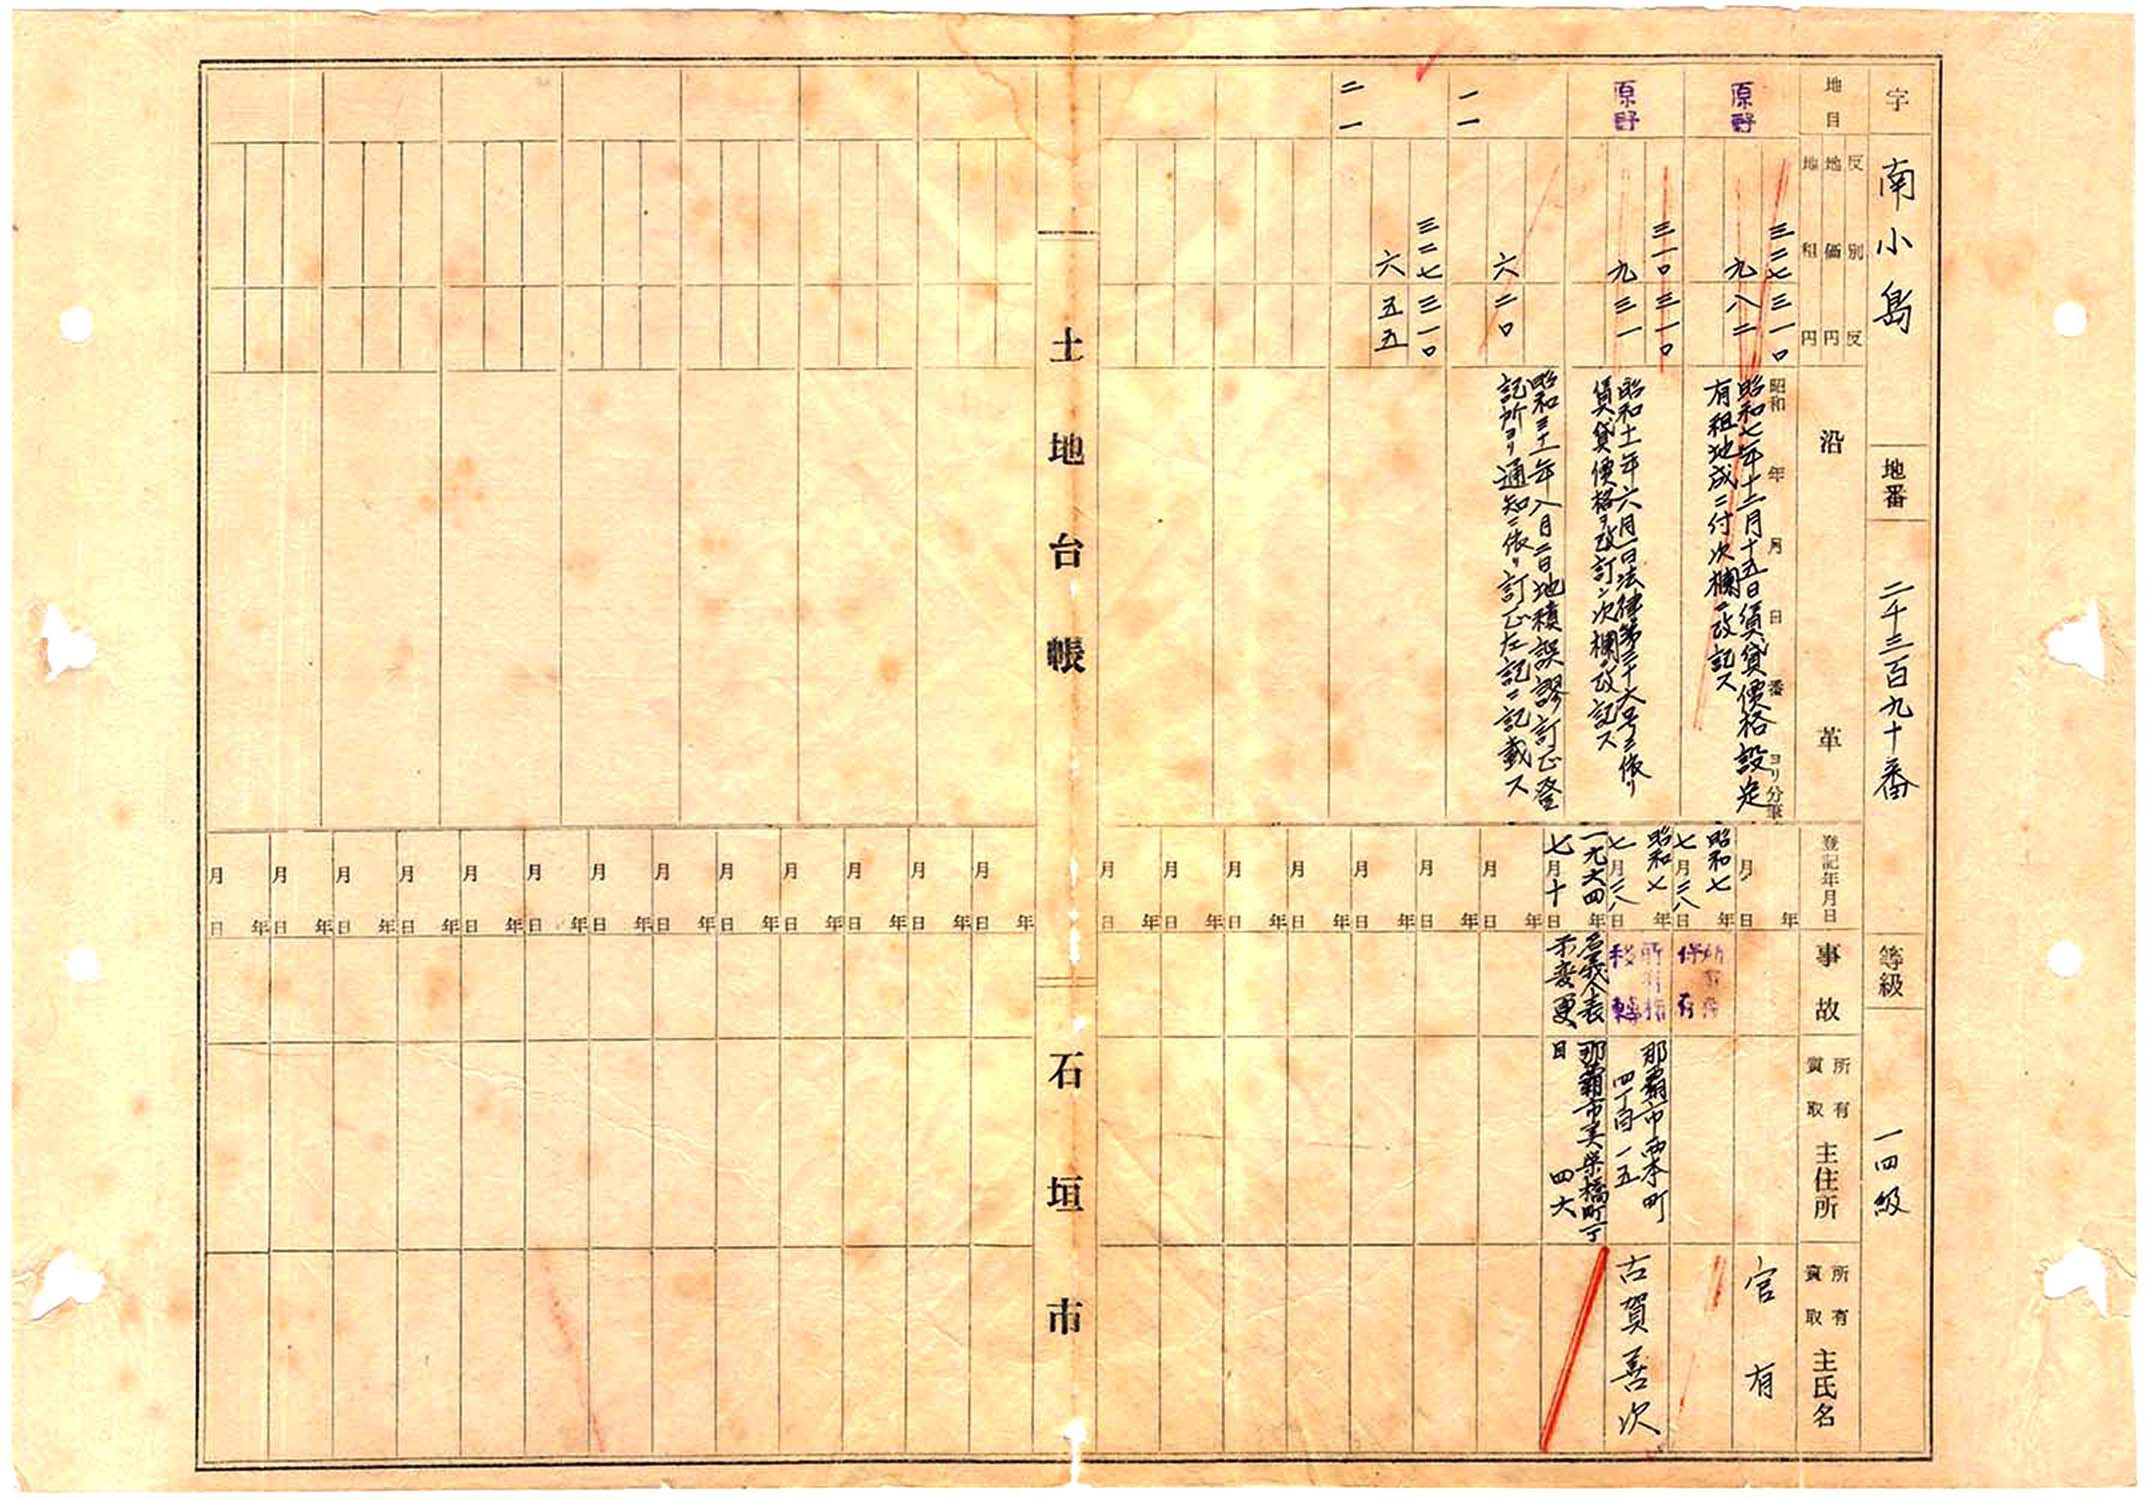 字 南小島 地番 二千三百九十番 等級 一四級
地目
反別 反
地価 円
地租 円
沿革
登記年月日
事故
所有 質取 主住所
所有 質取 主氏名
原野
三二七 三一〇
九 八二
昭和 年 月 日 番ヨリ分筆
昭和七年十二月十五日須貸貸價格設定
有租地成ニ付次欄ニ改記ス
原野
三一〇 三一〇
九 三一
昭和十一年六月一日法律第三十六号ニ依リ
賃貸價格ヲ改訂シ次欄ヘ改記ス
一一
六 二〇
昭和三十一年八月二日地積誤謬訂正登
記所ヨリ通知ニ依リ訂正左記ニ記載ス
二一
三二七 三一〇
六 五五
年 月 日
官有
昭和七年七月二八日
所有権保存
昭和七年七月二八日
所有権移轉
那覇市西本町
四丁目一五
古賀善次
一九六四年七月十日
名義人表
示変更
那覇市美栄橋町一丁
目 四六
土地台帳
石垣市